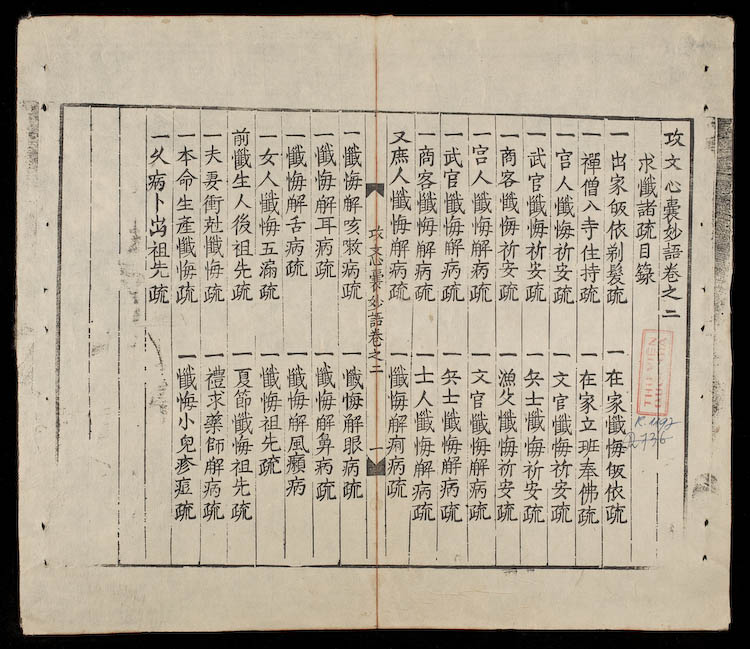 攻文心囊妙語卷之二
求懺諸疏目錄
一出家皈依剃髮疏 一在家懺悔皈依疏
一禪僧入寺住持疏 一在家立班奉佛疏
一宫人懺悔祈安疏 一文官懺悔祈安疏
一武官懺悔祈安疏 一兵士懺悔祈安疏
一商客懺悔祈安疏 一漁父懺悔祈安疏
一宫人懺悔解病疏 一文官懺悔解病疏
一武官懺悔解病疏 一兵士懺悔解病疏
一商客懺悔解病疏 一士人懺悔解病疏
又庶人懺悔解病疏 一懺悔解病疏
攻文心囊妙語卷之二 一
一懺悔解咳嗽病疏 一懺悔解眼病疏
一懺悔解耳病疏 一懺悔解鼻病疏
一懺悔解舌病疏 一懺悔解風癩病
一女人懺悔五漏疏 一懺悔祖先疏
前懺生人後祖先疏 一夏節懺悔祖先疏
一夫妻衝尅懺悔疏 一禮求藥師解病疏
一本命生產懺悔疏 一懺悔小兒疹痘疏
一久病卜出祖先疏
R.1192